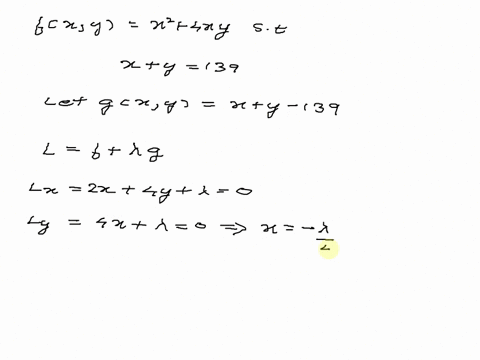 f(x,y) = x²+4xy s.t
x+y = 139
Let g(x,y) = x+y-139
L = f+λg
Lx = 2x+4y+λ=0
Ly = 4x+λ=0 ⇒ x = -λ/4